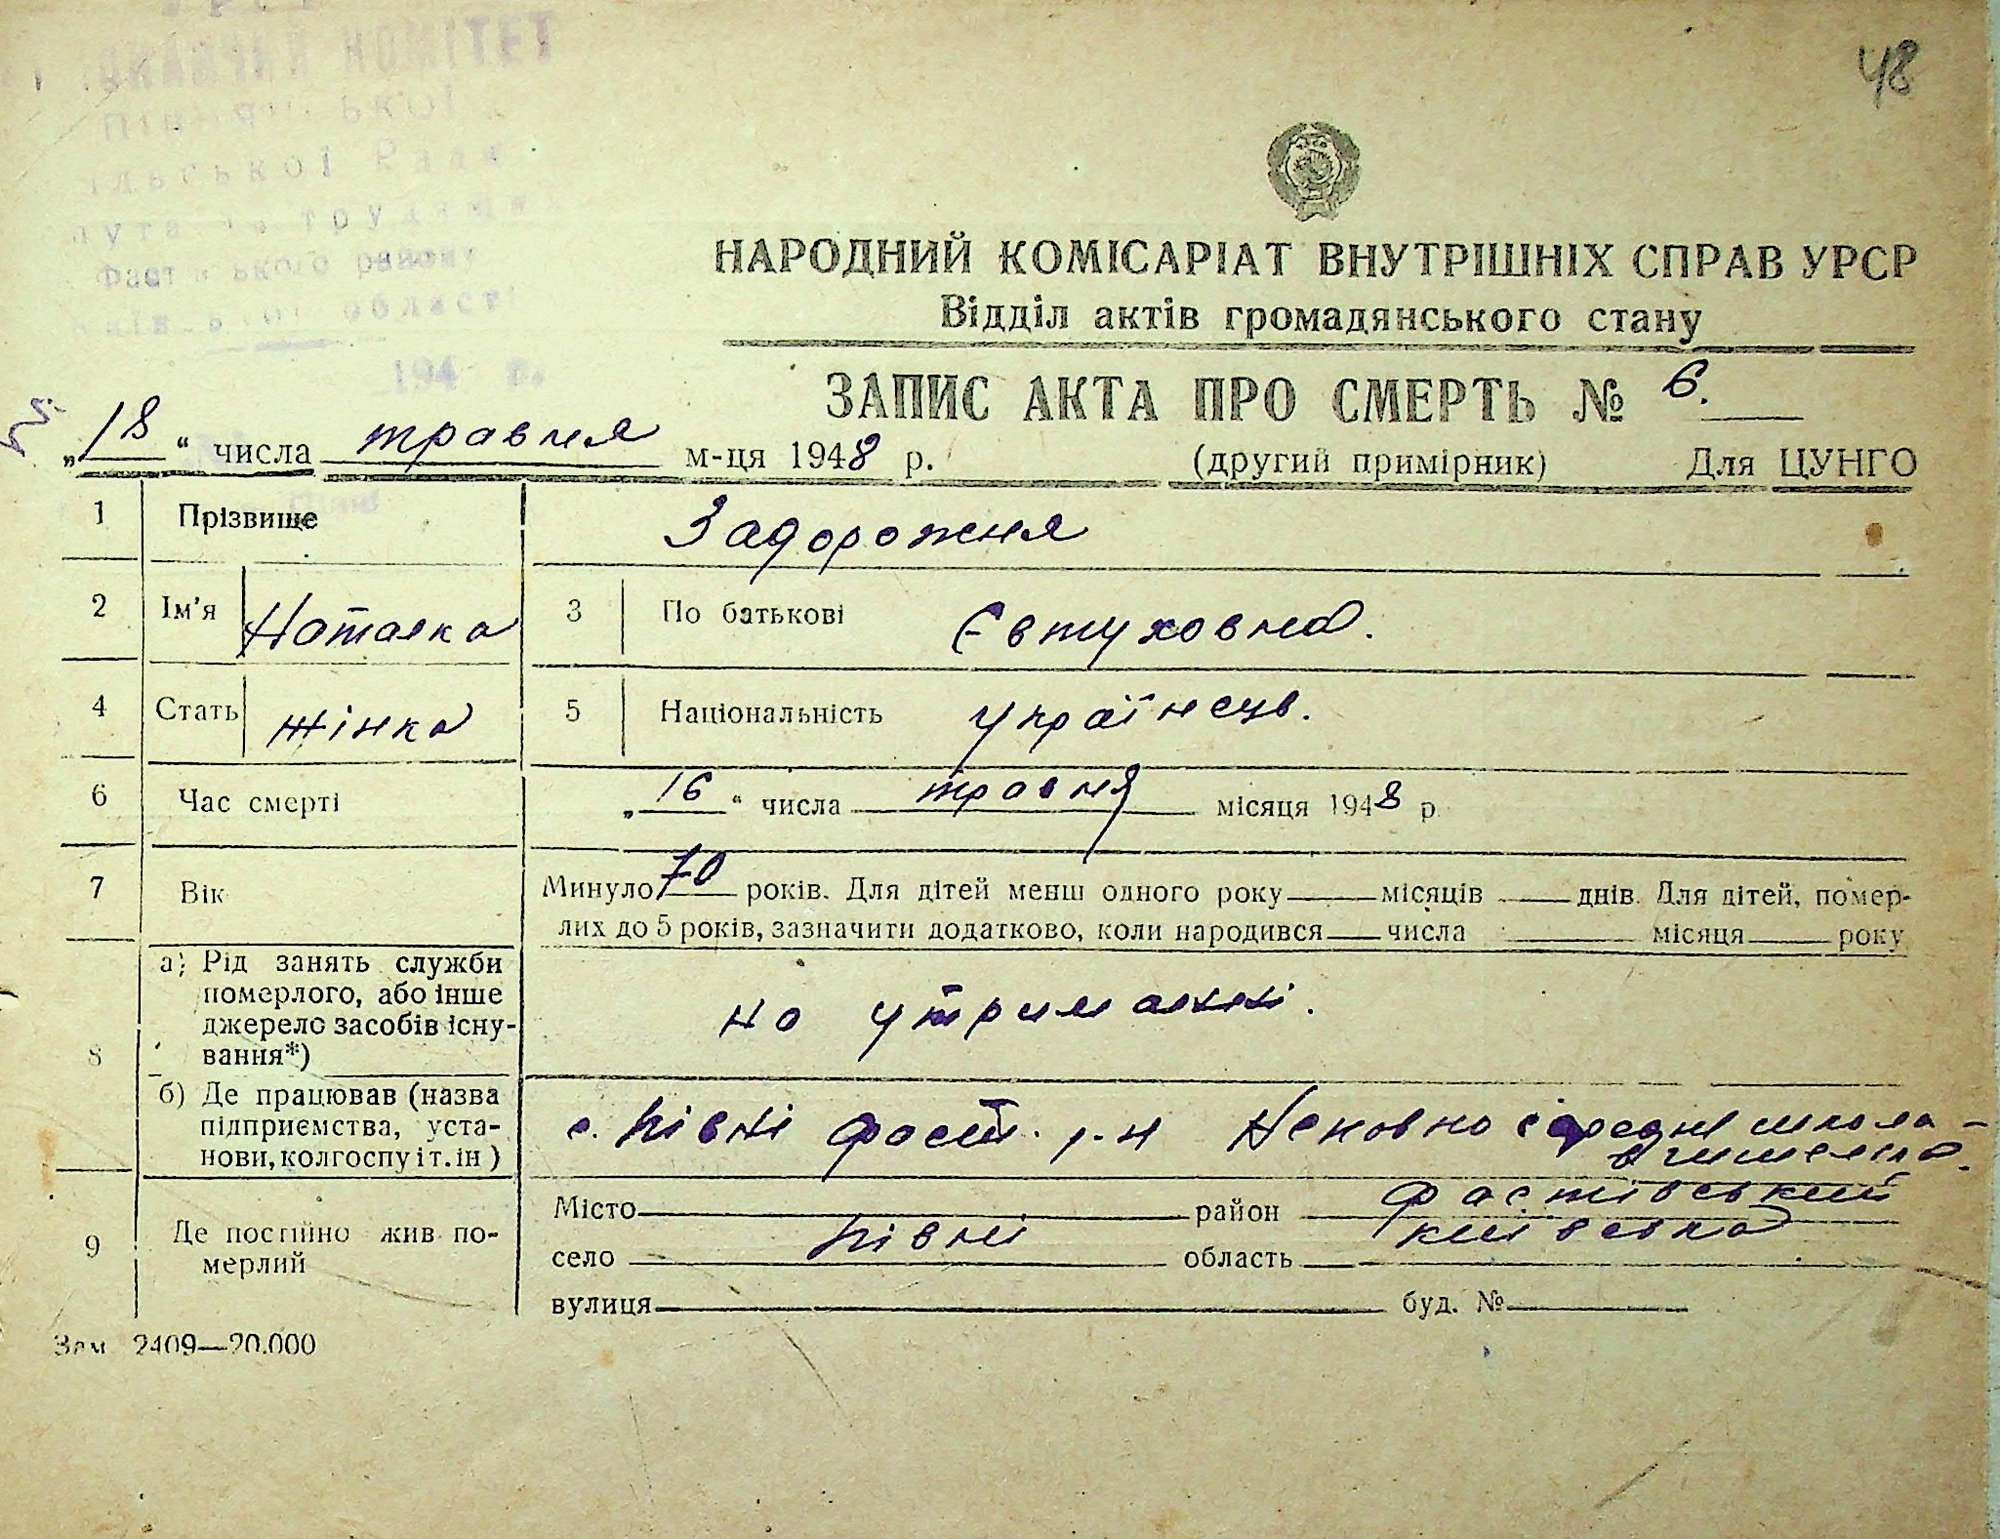 48
КОМІТЕТ
району
област
194 р.
НАРОДНИЙ КОМІСАРІАТ ВНУТРІШНІХ СПРАВ УРСР
Відділ актів громадянського стану
ЗАПИС АКТА ПРО СМЕРТЬ № 6.
„18“ числа травня м-ця 1948 р. (другий примірник) Для ЦУНГО
1 Прізвище Задорожня
2 Ім'я Наталка 3 По батькові Євтуховна.
4 Стать жінка 5 Національність українець.
6 Час смерті „16“ числа травня місяця 1948 р
7 Вік Минуло 70 років. Для дітей менш одного року місяців днів. Для дітей, помер-
лих до 5 років, зазначити додатково, коли народився числа місяця року
8 а) Рід занять служби
померлого, або інше
джерело засобів існу-
вання*)
на утриманні.
б) Де працював (назва
підприємства, уста-
нови, колгоспу і т. ін)
с. Півні Фаст. р-н Неповно середня школа -
вчителька.
9 Де постійно жив по-
мерлий
Місто район Фастівський
село Півні область київська
вулиця буд. №
Зам 2409—20.000